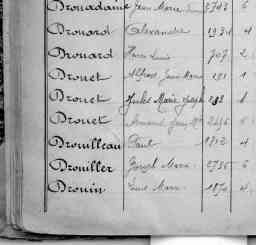 Drouadaine Jean Marie 2743 6
Drouard Alexandre 1934 4
Drouard Louis 707 2
Drouet Alfred Jean Marie 191 1
Drouet Jules Marie Joseph 1
Drouet Armand Jean Mie 2496 6
Drouilleau Paul 1712 4
Drouiller Joseph Marie 2756 6
Drouin Louis Marie 1874 4